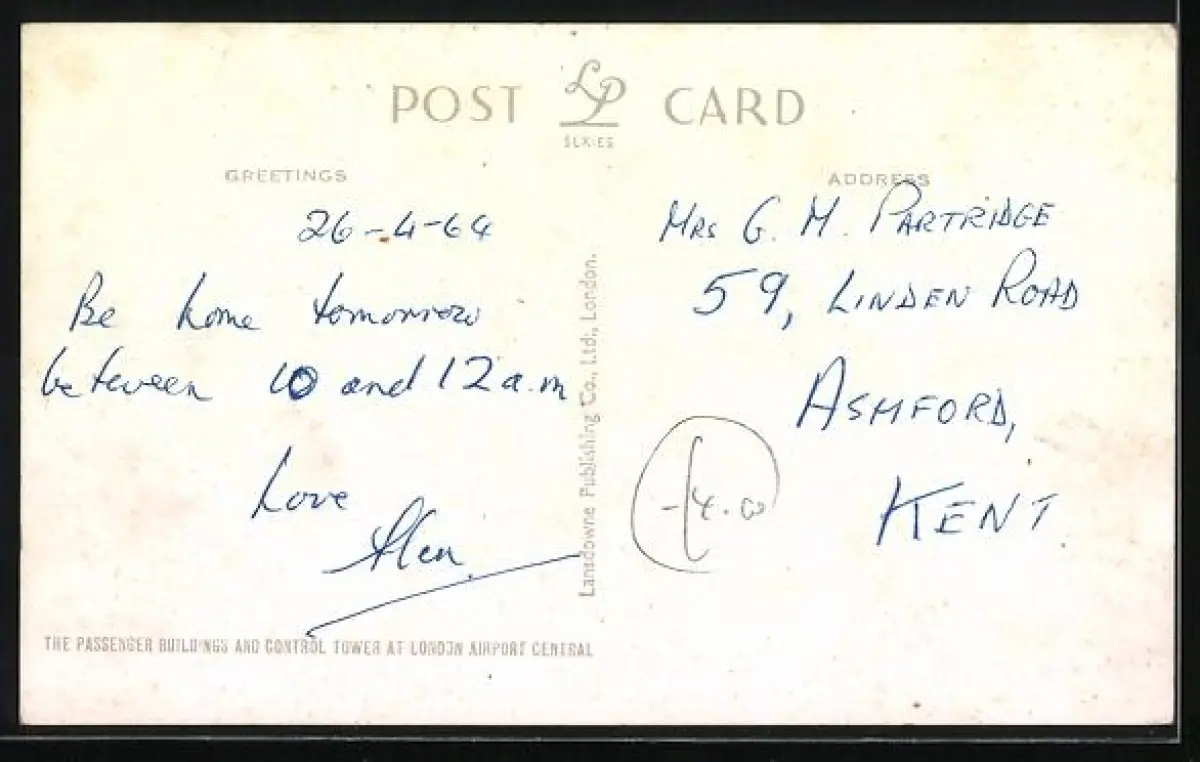 POST LP CARD
SERIES
GREETINGS
26-4-64
Be home tomorrow
between 10 and 12 a.m
Love
Alen
THE PASSENGER BUILDINGS AND CONTROL TOWER AT LONDON AIRPORT CENTRAL
Lansdowne Publishing Co., Ltd., London.
ADDRESS
MRS G. M. PARTRIDGE
59, LINDEN ROAD
ASHFORD,
KENT.
4.00